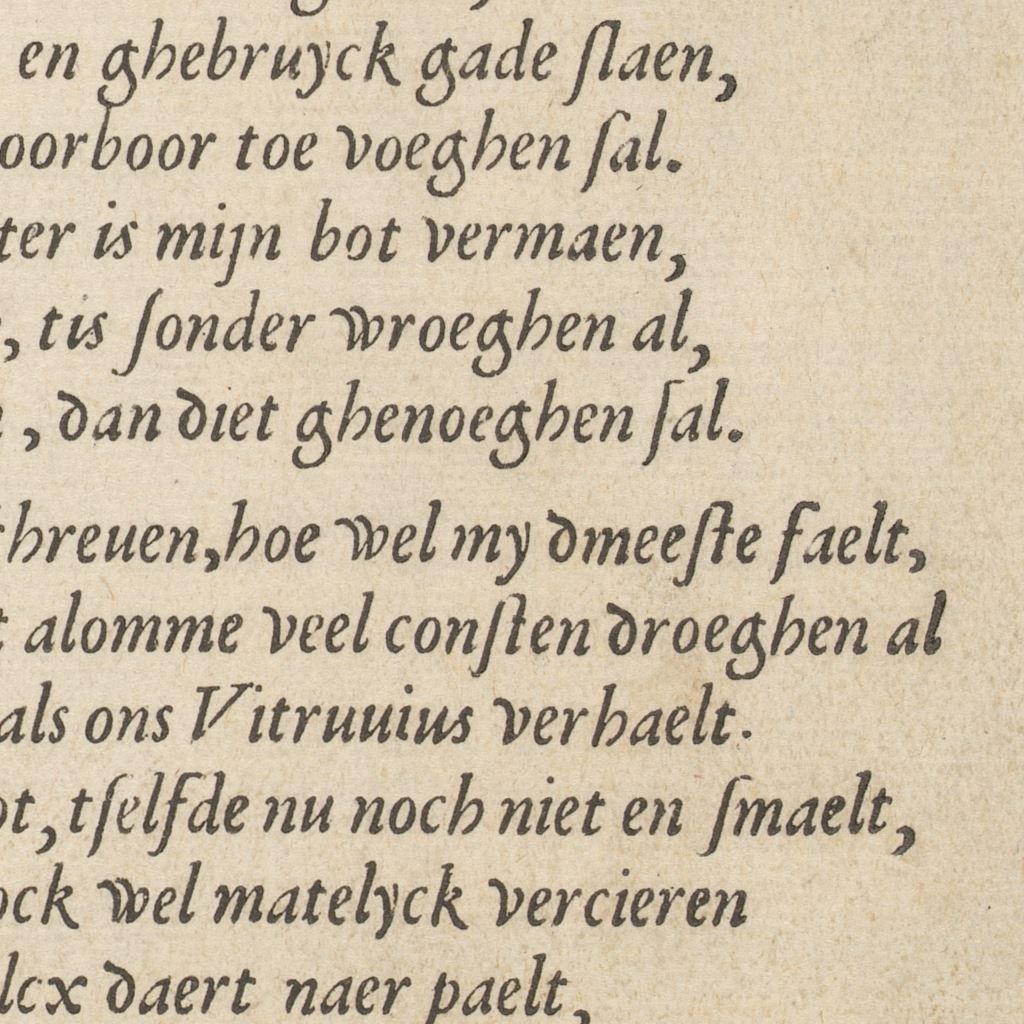 en ghebruyck gade ſlaen,
oorboor toe voeghen ſal.
ter is mijn bot vermaen,
, tis ſonder wroeghen al,
, dan diet ghenoeghen ſal.
chreuen, hoe wel my dmeeſte faelt,
t alomme veel conſten droeghen al
als ons Vitruuius verhaelt.
ot, tſelfde nu noch niet en ſmaelt,
ock wel matelyck vercieren
lcx daert naer paelt,